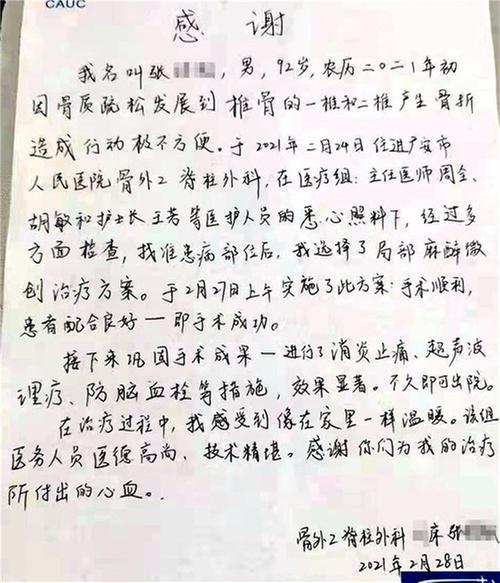 CAUC
感谢
我名叫张，男，92岁，农历二〇二一年初
因骨质疏松发展到椎骨的一椎和二椎产生骨折
造成行动极不方便。于2021年二月24日住进广安市
人民医院骨外2脊柱外科，在医疗组：主任医师周全、
胡敏和护士长王芳等医护人员的悉心照料下，经过多
方面检查，找准患病部位后，我选择了局部麻醉微
创治疗方案。于2月27日上午实施了此方案：手术顺利，
患者配合良好一即手术成功。
接下来巩固手术成果一进行了消炎止痛、超声波
理疗、防脑血栓等措施，效果显著。不久即可出院。
在治疗过程中，我感受到像在家里一样温暖。该组
医务人员医德高尚、技术精堪。感谢你们为我的治疗
所付出的心血。.
骨外2脊柱外科 床张
2021年2月28日